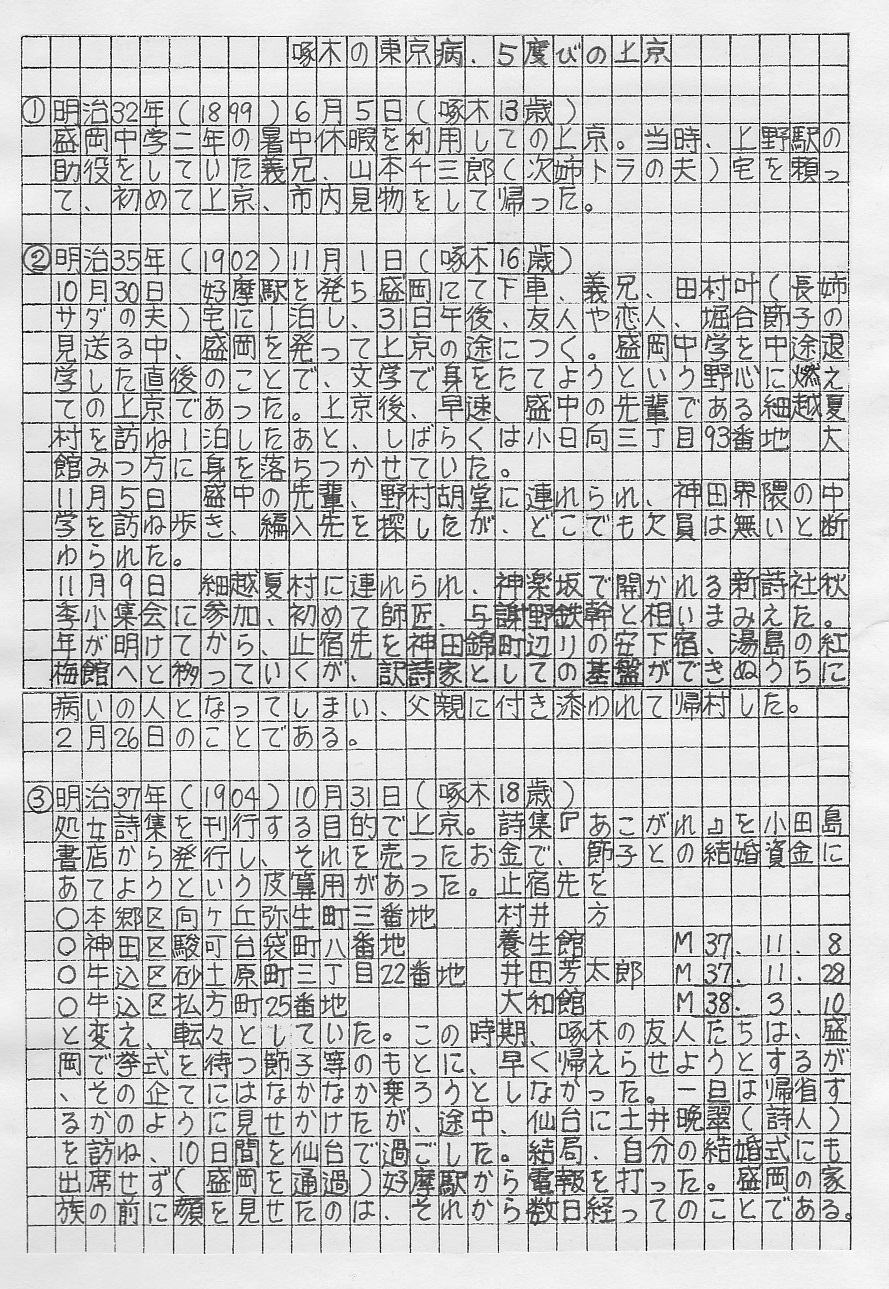 啄木の東京病、5度びの上京
①明治32年(1899)6月5日(啄木13歳)
盛岡中学二年の暑中休暇を利用しての上京。当時、上野駅の
助役をしていた義兄、山本千三郎(次姉トラの夫)宅を頼っ
て、初めて上京、市内見物をして帰った。
②明治35年(1902)11月1日(啄木16歳)
10月30日 好摩駅を発ち盛岡にて下車、義兄、田村叶(長姉
サダの夫)宅に1泊し、31日午後、友人や恋人、堀合節子の
見送る中、盛岡を発って上京の途につく。盛岡中学を中途退
学した直後のことで、文学で身をたてようという野心に燃え
ての上京であった。上京後、早速、盛中の先輩である細越夏
村を訪ね1泊したあと、しばらくは小日向三丁目93番地 大
館みつ方に身を落ちつかせていた。
11月5日 盛中の先輩、野村胡堂に連れられ、神田界隈の中
学を訪ね歩き、編入先を探したが、どこでも欠員は無いと断
わられた。
11月9日 細越夏村に連れられ、神楽坂で開かれる新詩社秋
季小集会に参加、初めて師匠、与謝野鉄幹と相いまみえた。
年が明けてから、止宿先を神田錦町辺りの安下宿、湯島の紅
梅館へと移っていくが、訳詩家としての基盤ができぬうちに
病いの人となってしまい、父親に付き添われて帰村した。
2月26日のことである。
③明治37年(1904)10月31日(啄木18歳)
処女詩集を刊行する目的で上京。詩集『あこがれ』を小田島
書店から発行し、それを売ったお金で、節子との結婚資金に
あてようという皮算用があった。止宿先を
○本郷区向ヶ丘弥生町三番地 村井 方
○神田区駿可台袋町八番地 養生館 M37.11.8
○牛込区砂土原町三丁目22番地 井田芳太郎 M37.11.28
○牛込区払方町25番地 大和館 M38.3.10
と変え、転々としていた。この時期、啄木の友人たちは、盛
岡で挙式を待つ節子等のもとに、早く帰えらせようとするが
、その企てにはなかなか乗ろうとしなかった。一旦は帰省す
るかのように見せかけたが、途中、仙台に土井晩翠(詩人)
を訪ね、10日間を仙台で過ごした。結局、自分の結婚式にも
出席せず(盛岡を通過)好摩駅から電報を打った。盛岡の家
族の前に顔を見せたのは、それから数日経ってのことである。